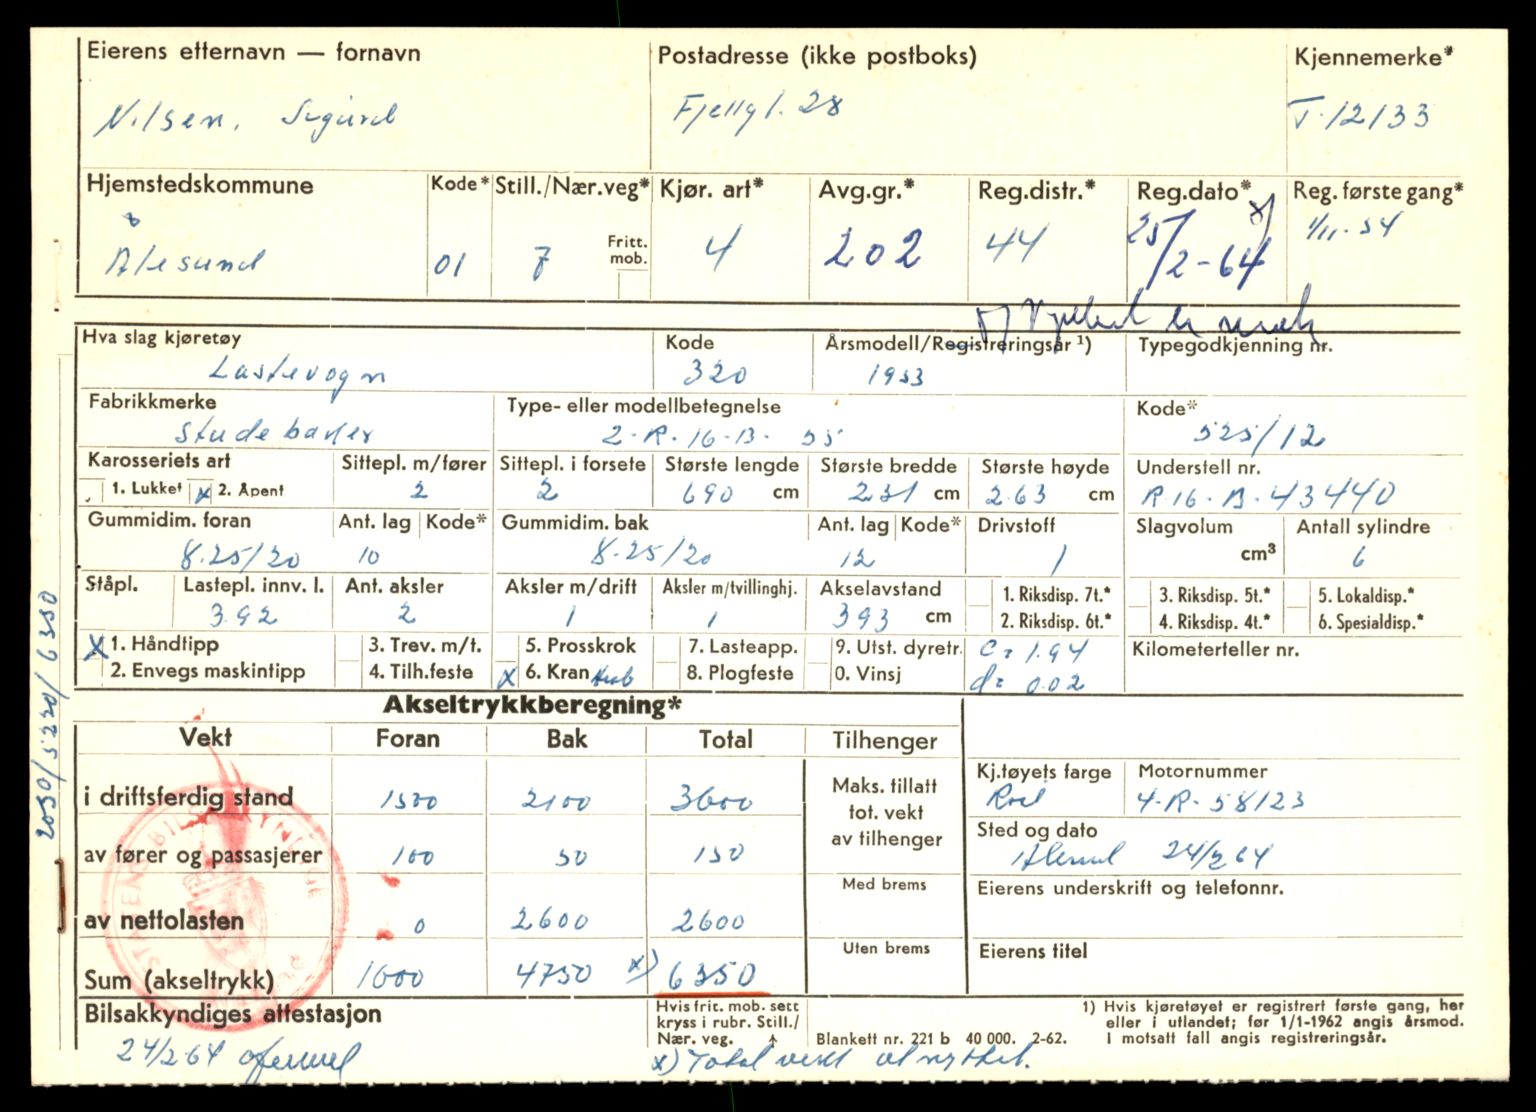 Eierens etternavn — fornavn Postadresse (ikke postboks) Kjennemerke*
Nilsen, Sigurd Fjellgt. 28 T-12133
Hjemstedskommune Kode* Still./Nær.veg* Kjør. art* Avg.gr.* Reg.distr.* Reg.dato* Reg. første gang*
Ålesund 01 7 Fritt. mob. 4 202 44 25/2-64 1/11-54
Hva slag kjøretøy Kode Årsmodell/Registreringsår ¹) Typegodkjenning nr.
Lastevogn 320 1953
Fabrikkmerke Type- eller modellbetegnelse Kode*
Studebaker 2-R-16-B-55 525/12
Karosseriets art Sittepl. m/fører Sittepl. i forsete Største lengde Største bredde Største høyde Understell nr.
1. Lukket x 2. Åpent 2 2 690 cm 231 cm 263 cm R-16-B-43440
Gummidim. foran Ant. lag Kode* Gummidim. bak Ant. lag Kode* Drivstoff Slagvolum Antall sylindre
8.25/20 10 8.25/20 12 1 cm³ 6
Ståpl. Lastepl. innv. l. Ant. aksler Aksler m/drift Aksler m/tvillinghj. Akselavstand 1. Riksdisp. 7t.* 3. Riksdisp. 5t.* 5. Lokaldisp.*
3.92 2 1 1 393 cm 2. Riksdisp. 6t.* 4. Riksdisp. 4t.* 6. Spesialdisp.*
x 1. Håndtipp 3. Trev. m/t. 5. Prosskrok 7. Lasteapp. 9. Utst. dyretr. C= 1.94 Kilometerteller nr.
2. Envegs maskintipp 4. Tilh.feste x 6. Kran 8. Plogfeste 0. Vinsj d= 0.02
Akseltrykkberegning*
Vekt Foran Bak Total Tilhenger
i driftsferdig stand 1500 2100 3600 Maks. tillatt tot. vekt av tilhenger
Kj.tøyets farge Motornummer
Rød 4-R-58123
av fører og passasjerer 100 50 150
Sted og dato
Ålesund 24/2 64
Med brems
Eierens underskrift og telefonnr.
av nettolasten 0 2600 2600
Uten brems
Eierens titel
Sum (akseltrykk) 1600 4750 x) 6350
Bilsakkyndiges attestasjon
24/2-64
Hvis frit. mob. sett
kryss i rubr. Still./
Nær. veg.
Blankett nr. 221 b 40 000. 2-62.
1) Hvis kjøretøyet er registrert første gang, her
eller i utlandet; før 1/1-1962 angis årsmod.
I motsatt fall angis registreringsår.
x) Total vekt utnyttet.
2050/5220/6350
STATENS BILSAKKYNDIGE